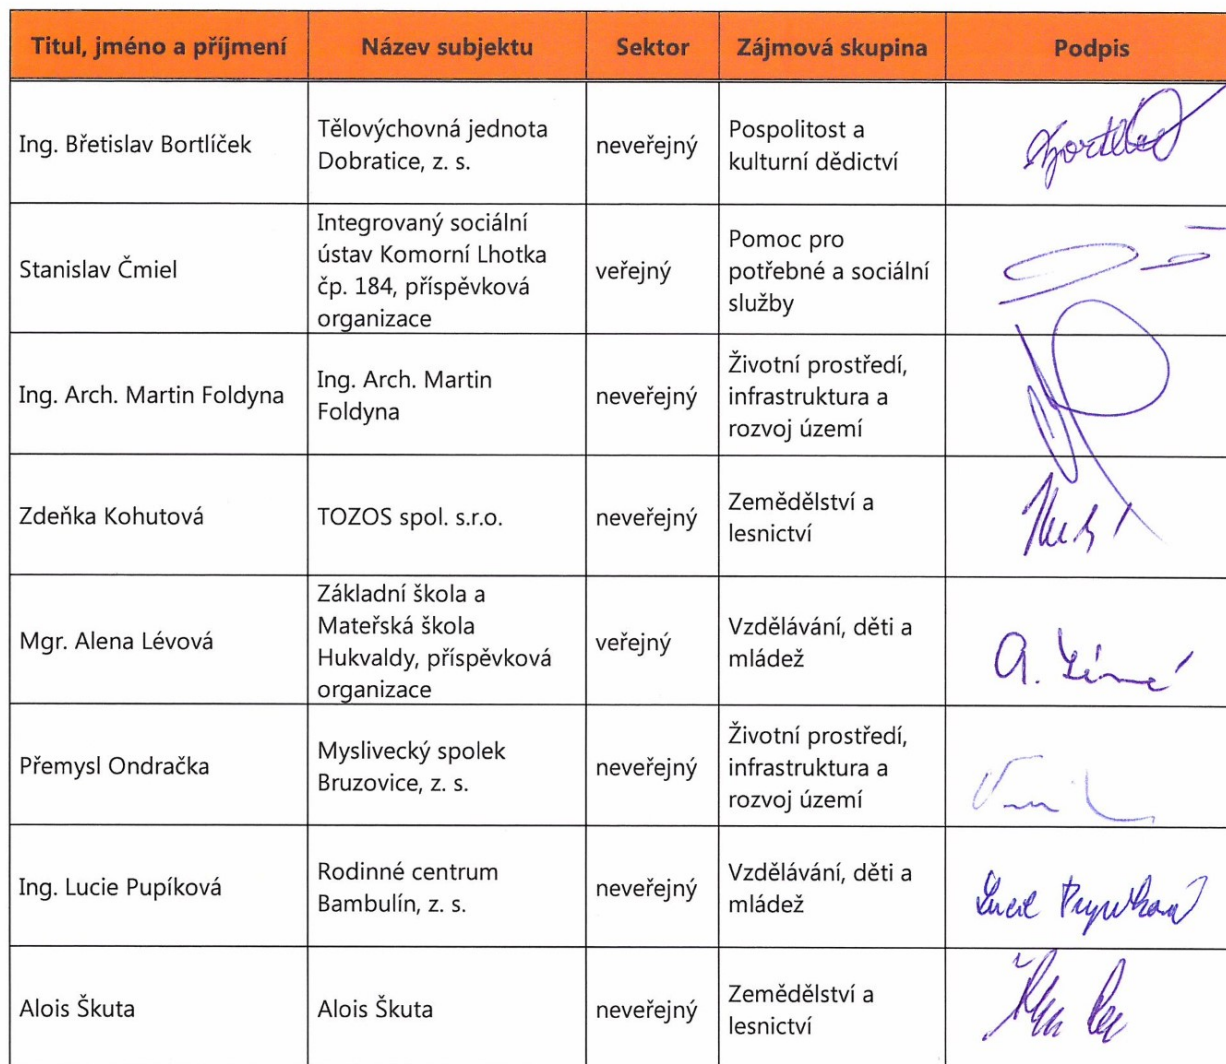 Titul, jméno a příjmení Název subjektu Sektor Zájmová skupina Podpis
Ing. Břetislav Bortlíček
Tělovýchovná jednota
Dobratice, z. s.
neveřejný
Pospolitost a
kulturní dědictví
Stanislav Čmiel
Integrovaný sociální
ústav Komorní Lhotka
čp. 184, příspěvková
organizace
veřejný
Pomoc pro
potřebné a sociální
služby
Ing. Arch. Martin Foldyna
Ing. Arch. Martin
Foldyna
neveřejný
Životní prostředí,
infrastruktura a
rozvoj území
Zdeňka Kohutová
TOZOS spol. s.r.o.
neveřejný
Zemědělství a
lesnictví
Mgr. Alena Lévová
Základní škola a
Mateřská škola
Hukvaldy, příspěvková
organizace
veřejný
Vzdělávání, děti a
mládež
Přemysl Ondračka
Myslivecký spolek
Bruzovice, z. s.
neveřejný
Životní prostředí,
infrastruktura a
rozvoj území
Ing. Lucie Pupíková
Rodinné centrum
Bambulín, z. s.
neveřejný
Vzdělávání, děti a
mládež
Alois Škuta
Alois Škuta
neveřejný
Zemědělství a
lesnictví